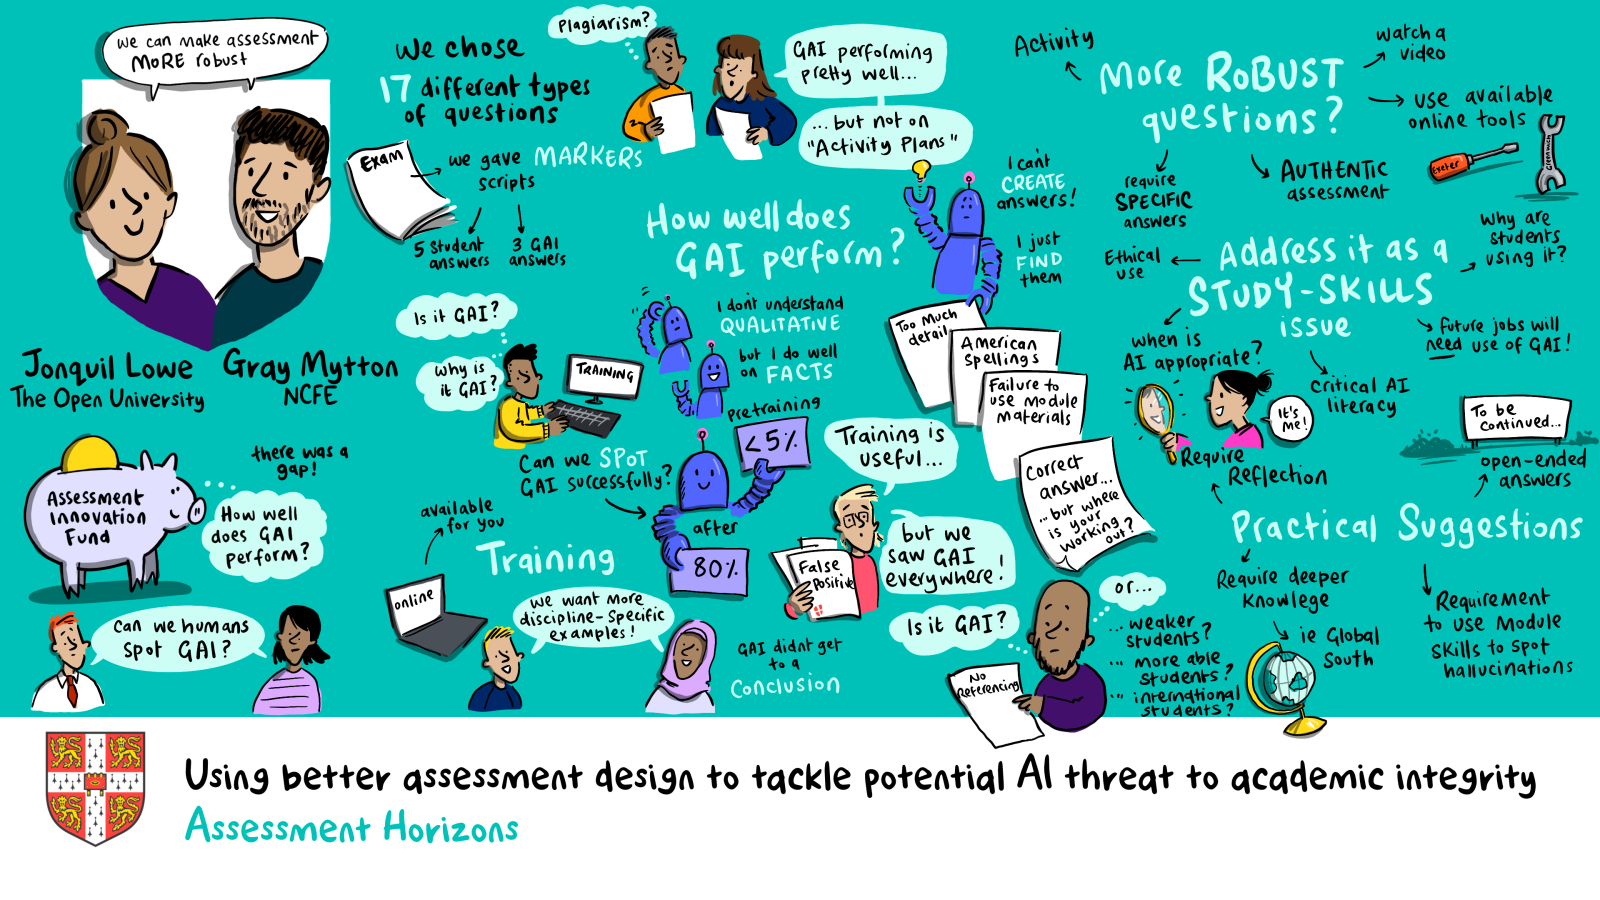 we can make assessment
MORE robust
Jonquil Lowe
The Open University
Gray Mytton
NCFE
there was a
gap!
Assessment
Innovation
Fund
How well
does GAI
perform?
Can we humans
spot GAI?
We chose
17 different types
of questions
Exam
we gave MARKERS
scripts
5 Student
answers
3 GAI
answers
Plagiarism?
GAI performing
pretty well...
... but not on
"Activity Plans"
How well does
GAI perform?
I can't
CREATE
answers!
I just
FIND
them
I don't understand
QUALITATIVE
but I do well
on FACTS
Is it GAI?
Why is
it GAI?
TRAINING
Can we SPOT
GAI successfully?
pretraining
<5%
after
80%
available
for you
Training
online
we want more
discipline-specific
examples!
GAI didnt get
to a
Conclusion
Training is
useful...
but we
saw GAI
everywhere!
False
Positive
Too Much
detail
American
spellings
Failure to
use module
materials
Correct
answer...
...but where
is your
working
out?
Is it GAI?
No
Referencing
or...
... weaker
students?
... more able
students?
... international
students?
More ROBUST
questions?
Activity
watch a
video
use available
online tools
Exeter
Greenwich
AUTHENTIC
assessment
require
SPECIFIC
answers
Address it as a
STUDY-SKILLS
issue
Ethical
use
Why are
students
using it?
future jobs will
need use of GAI!
Critical AI
literacy
when is
AI appropriate?
It's
me!
Require
Reflection
To be
Continued...
open-ended
answers
Practical Suggestions
Require deeper
Knowlege
ie Global
South
Requirement
to use module
skills to spot
hallucinations
Using better assessment design to tackle potential AI threat to academic integrity
Assessment Horizons